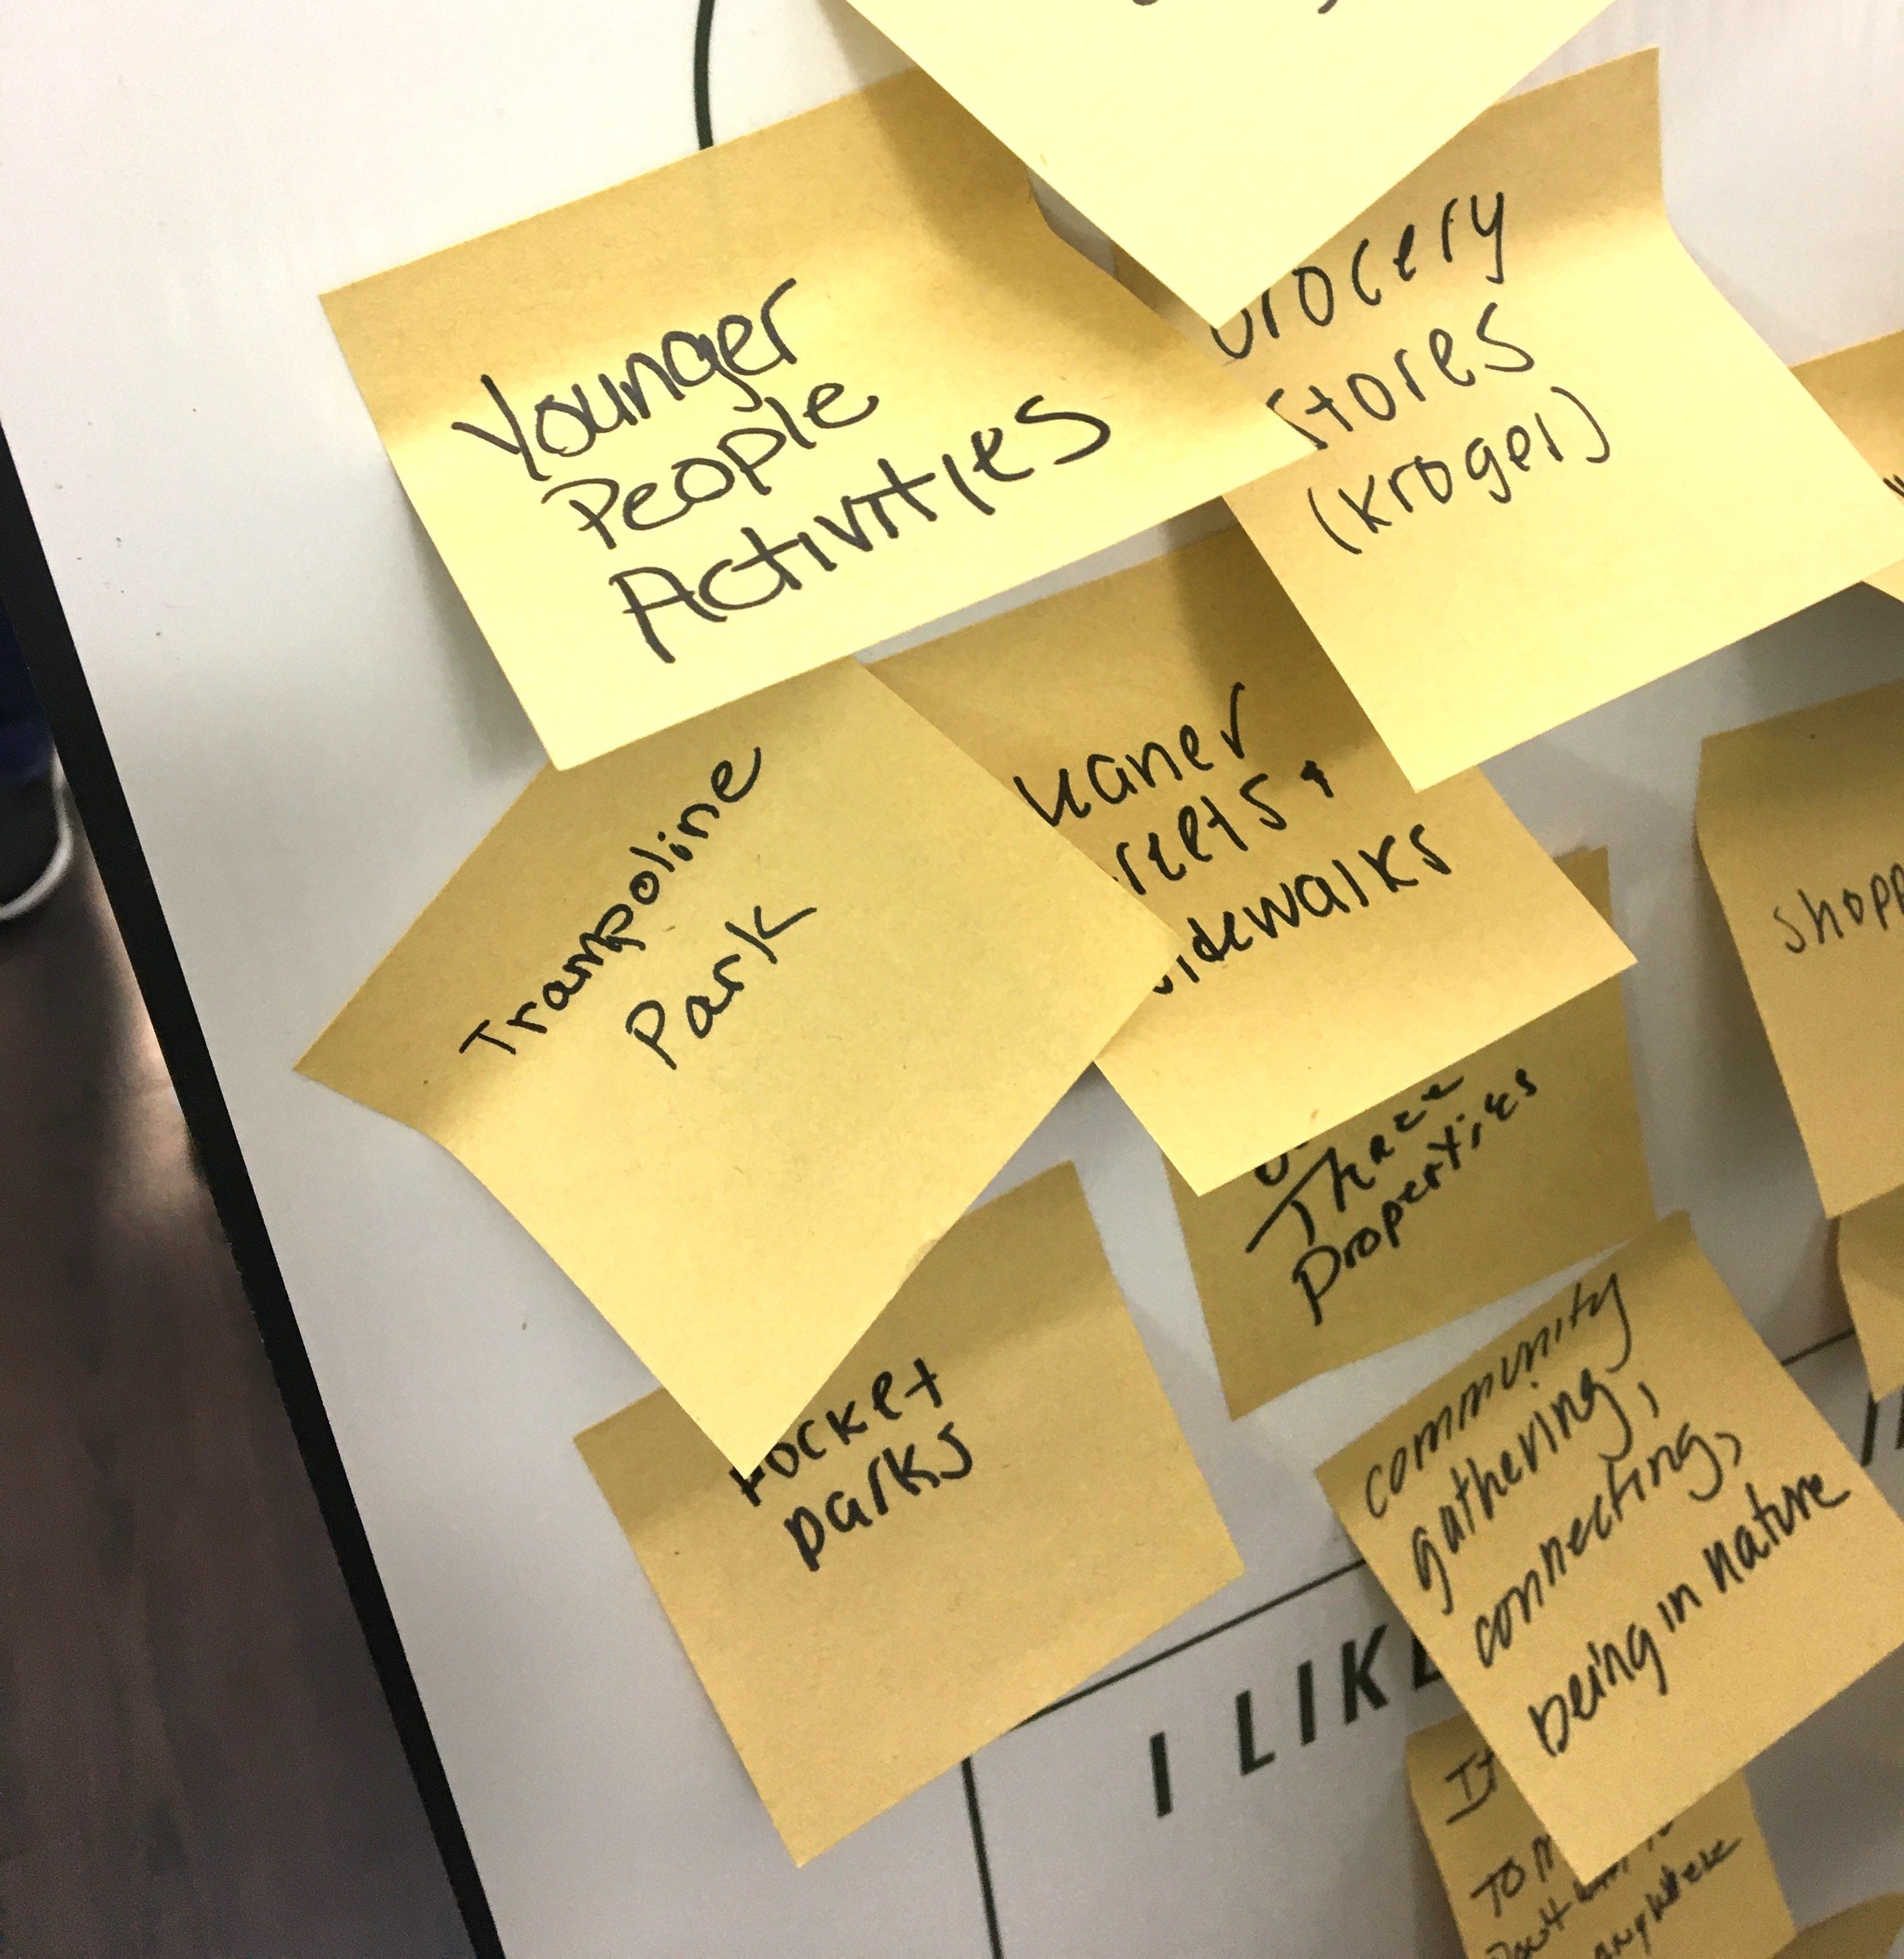 Younger
People
Activities
Grocery
Stores
(Kroger)
Trampoline
Park
Cleaner
Streets &
Sidewalks
These
Properties
Pocket
parks
community
gathering,
connecting,
being in nature
shopp
I LIKE
It
TO
Don't
anywhere